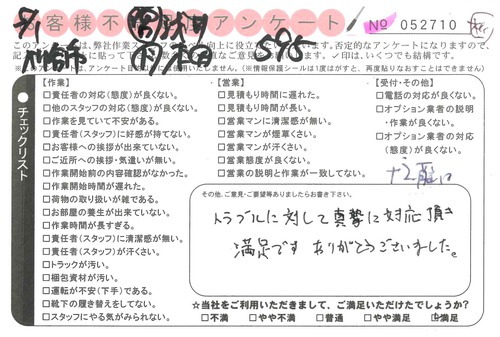 お客様不満足度アンケート
No 052710
このアンケートは、弊社作業スタッフの
向上に役立
否定的なアンケートになりますので、
ご意見をお願いします。✓印は、いくつでも結構です。
(※情報保護シールは1度はがすと、再度貼りなおすことはできません)
チェックリスト
【作業】
□責任者の対応(態度)が良くない。
□他のスタッフの対応(態度)が良くない。
□作業を見ていて不安がある。
□責任者(スタッフ)に好感が持てない。
□お客様への挨拶が出来ていない。
□ご近所への挨拶・気遣いが無い。
□作業開始前の内容確認がなかった。
□作業開始時間が遅れた。
□荷物の取り扱いが雑である。
□お部屋の養生が出来ていない。
□作業時間が長すぎる。
□責任者(スタッフ)に清潔感が無い。
□責任者(スタッフ)が汗くさい。
□トラックが汚い。
□梱包資材が汚い。
□運転が不安(下手)である。
□靴下の履き替えをしてない。
□スタッフにやる気がみられない。
【営業】
□見積もり時間に遅れた。
□見積もり時間が長い。
□営業マンに清潔感が無い。
□営業マンが煙草くさい。
□営業マンが汗くさい。
□営業態度が良くない。
□営業の説明と作業が一致してない。
【受付・その他】
□電話の対応が良くない。
□オプション業者の説明
・作業が良くない。
□オプション業者の対応
(態度)が良くない。
その他、ご意見・ご要望等ありましたらお書き下さい。
トラブルに対して真摯に対応頂き
満足です ありがとうございました。
☆当社をご利用いただきまして、ご満足いただけてしょうか?
□不満 □やや不満 □普通 □やや満足 ☑満足